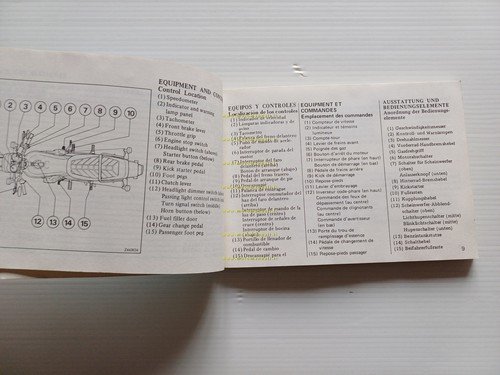 2 3 4 5 6 7 8 9 10
12 13 14 15
EQUIPMENT AND
Control Location
(1) Speedometer
(2) Indicator and warning
lamp panel
(3) Tachometer
(4) Front brake lever
(5) Throttle grip
(6) Engine stop switch
(7) Headlight switch (above)
Starter button (below)
(8) Rear brake pedal
(9) Kick starter pedal
(10) Foot pegs
(11) Clutch lever
(12) Headlight dimmer switch
Passing light control switch
Turn signal switch (middle)
Horn button (below)
(13) Fuel filler door
(14) Gear change pedal
(15) Passenger foot peg
EQUIPOS Y CONTROLES
Localización de los controles
(1) Indicador de velocidad
(2) Lámparas indicadoras y de
aviso
(3) Tacómetro
(4) Palanca del freno delantero
(5) Puño de mando de acele-
rador
(6) Interruptor de parada del
motor
(7) Interruptor del faro
(arriba)
Botón de arranque (abajo)
(8) Pedal del freno trasero
(9) Pedal de arranque de pie
(12) Interruptor conmutador de
luz del faro delantero
(arriba)
Interruptor de mando de la
luz de paso (centro)
Interruptor de señal de giro
(centro)
Interruptor de bocina
(abajo)
(13) Portilla de llenador de
combustible
(14) Pedal de cambio
(15) Descansapie para el
EQUIPMENT ET
COMMANDES
Emplacement des commandes
(1) Compteur de vitesse
(2) Indicateur et témoins
lumineux
(3) Compte-tour
(4) Levier de frein avant
(5) Poignée des gaz
(6) Bouton d'arrêt du moteur
(7) Interrupteur de phare (en haut)
Bouton de démarrage (en bas)
(8) Pédale de frein arrière
(9) Kick de démarrage
(10) Repose-pieds
(11) Levier d'embrayage
(12) Inverseur code-phare (en haut)
Commande des feux de
dépassement (au centre)
Commande de clignotants
(au centre)
Commande d'avertisseur
(en bas)
(13) Porte du trou de
remplissage d'essence
(14) Pédale de changement de
vitesse
(15) Repose-pieds passager
AUSSTATTUNG UND
BEDIENUNGSELEMENTE
Anordnung der Bedienungs-
elemente
(1) Geschwindigkeitsmesser
(2) Kontroll- und Warnlampen
(3) Drehzahlmesser
(4) Vorderrad-Handbremshebel
(5) Gasdrehgriff
(6) Motoraltschalter
(7) Schalter für Scheinwerfer
(oben)
Anlasserknopf (unten)
(8) Hinterrad-Bremshebel
(9) Kickstarter
(10) Fußrasten
(11) Kupplungshebel
(12) Scheinwerfer-Abblend-
schalter (oben)
Lichthupenschalter (mitte)
Blinklichtschalter (mitte)
Hupenschalter (unten)
(13) Benzintankmütze
(14) Schalthebel
(15) Beifahrerfußraste
9